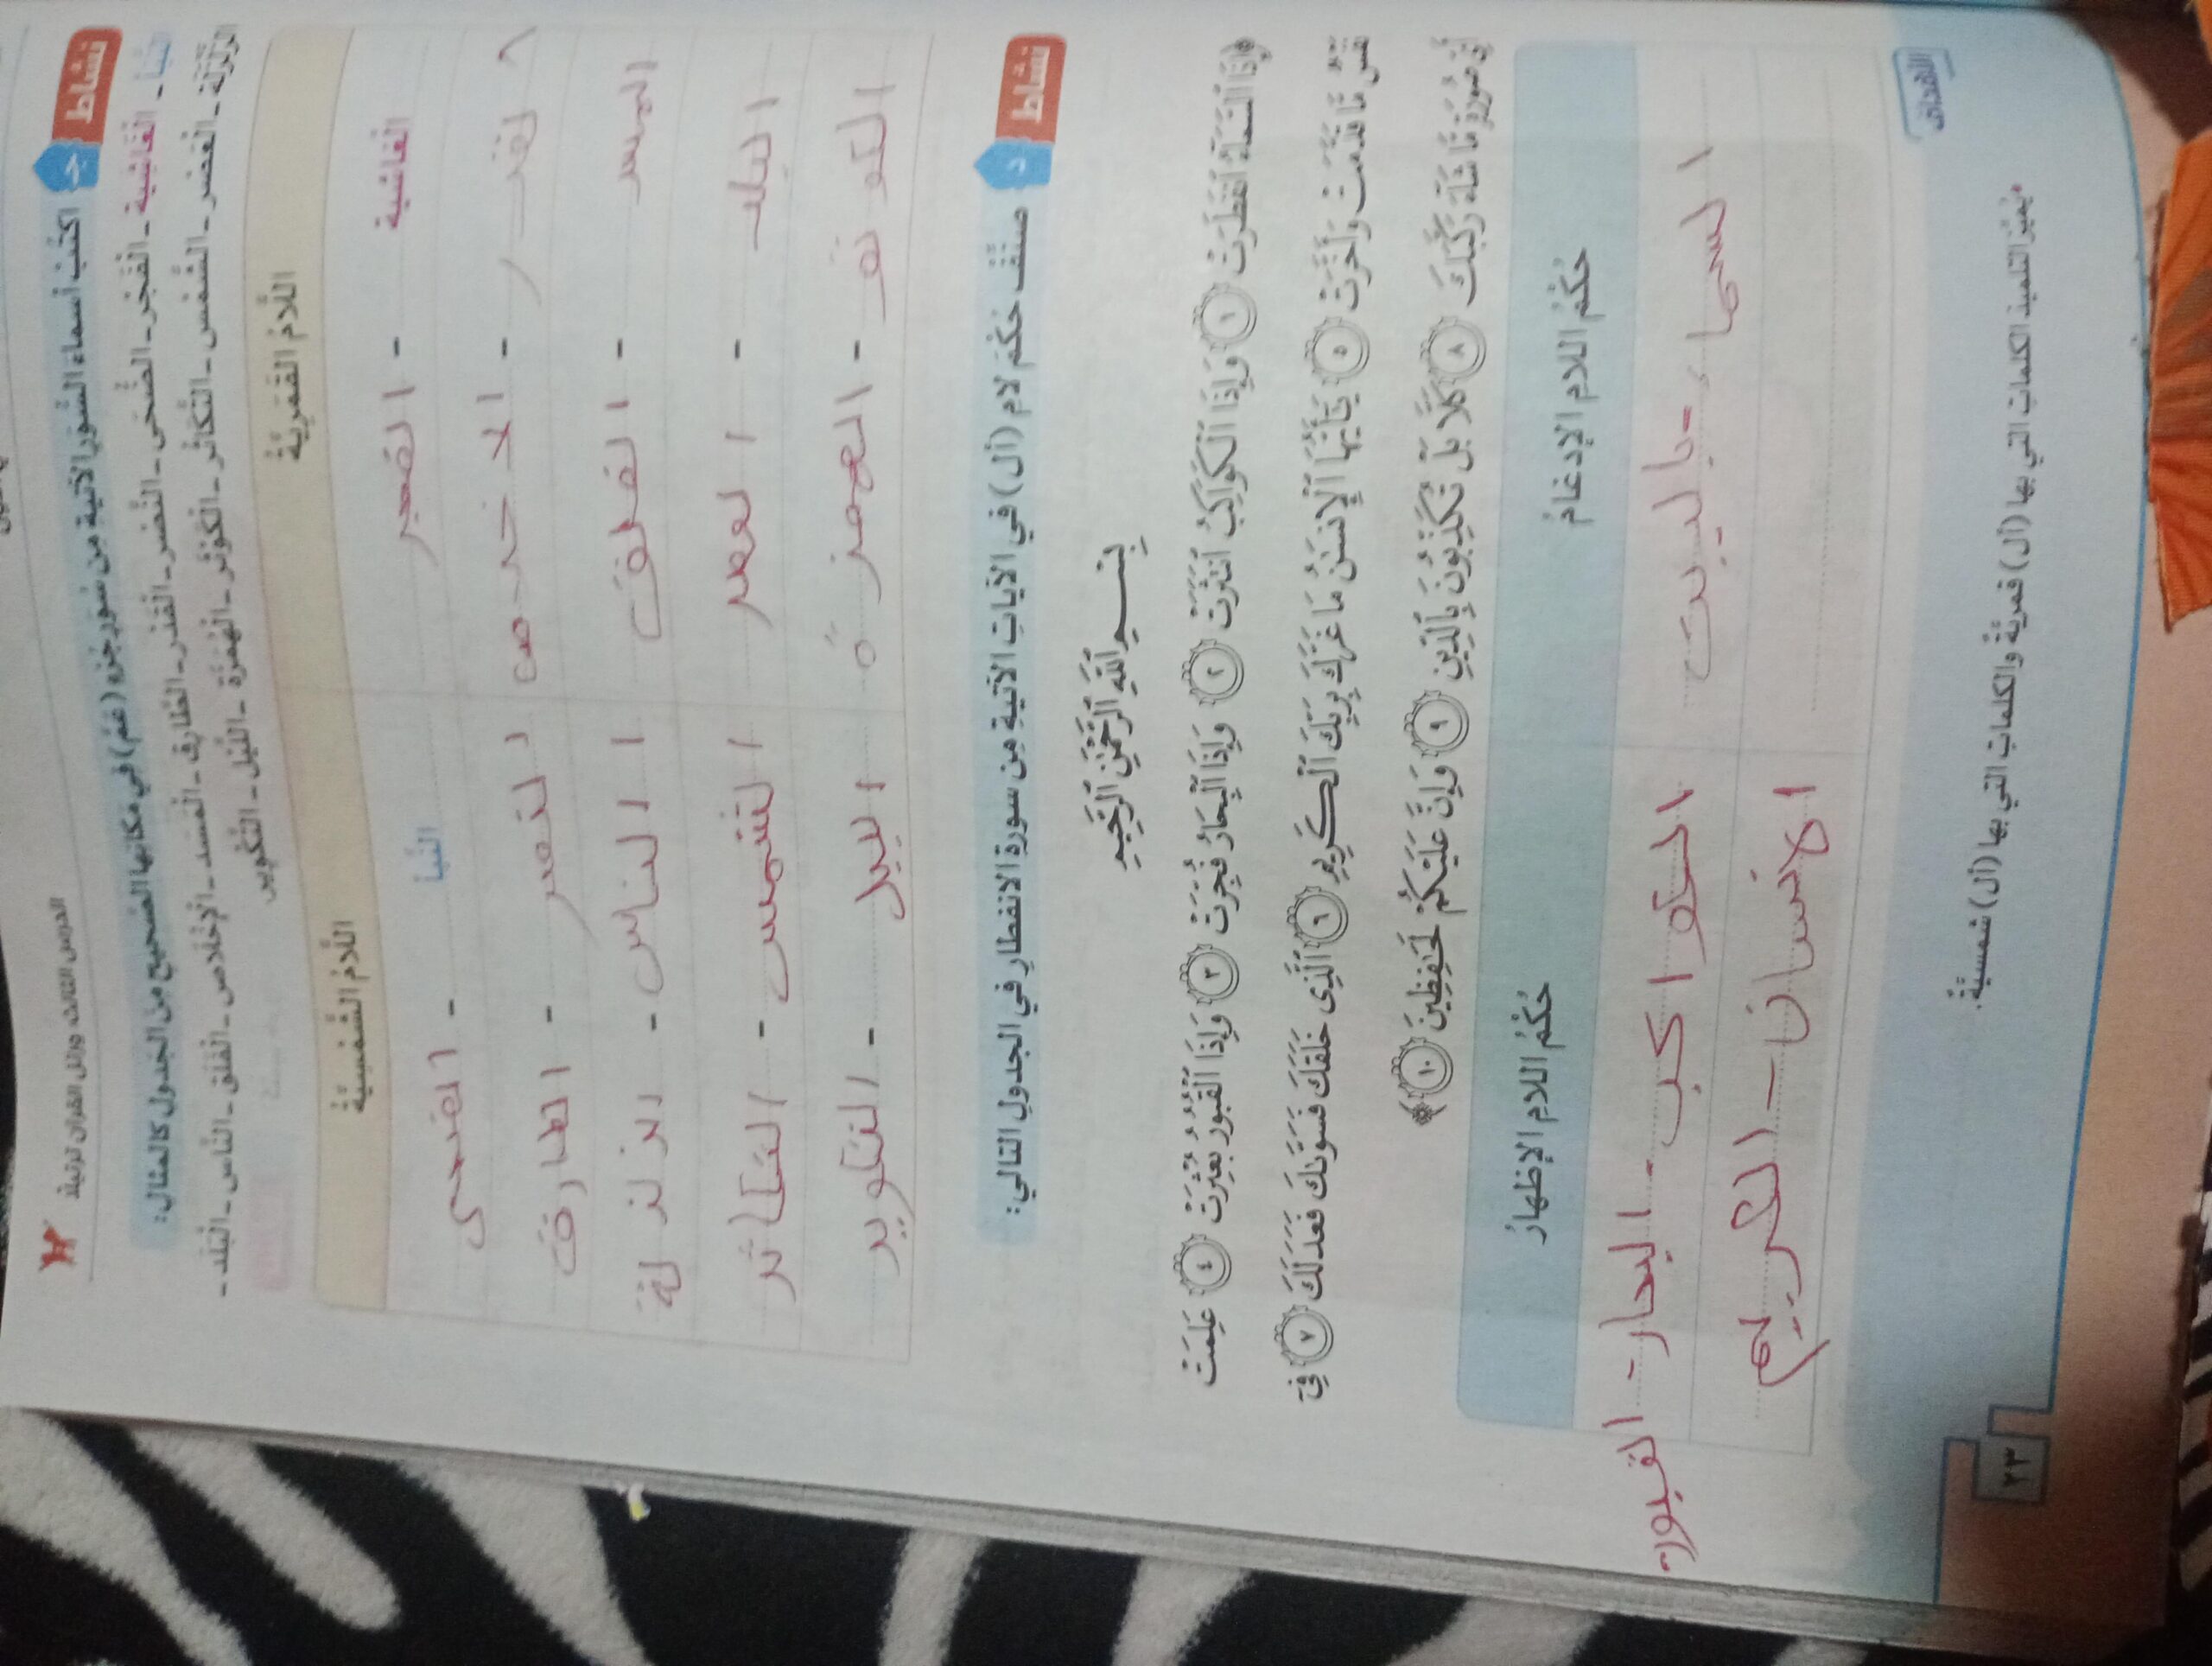 الدرس الثالث: ورتل القرآن ترتيلا
نشاط
جـ
اكتُبْ أسماءَ السُّوَرِ الآتيةِ مِن سُوَرِ جُزْءِ (عَمَّ) في مكانِها الصَّحيحِ مِنَ الجَدولِ كالمثالِ:
النَّبأ - الْغَاشِية - الْفَجْر - الضُّحَى - النَّصْر - الْقَدْر - الطَّارِق - الْمَسَد - الْإِخْلَاص - الْفَلَق - النَّاس - الْبَلَد -
الزَّلْزَلَة - الْعَصْر - الشَّمْس - التَّكَاثُر - الْكَوْثَر - الْهُمَزَة - اللَّيْل - التَّكْوِير
اللَّامُ القَمَريَّةُ
اللَّامُ الشَّمْسِيَّةُ
الغاشية - الفجر
النبأ - الضحى
القدر - الاخلاص
النصر - الطارق
المسد - الفلق
الناس - الزلزلة
البلد - العصر
الشمس - التكاثر
الكوثر - الهمزة
الليل - التكوير
نشاط
د
صنِّفْ حُكْمَ لامِ (أل) في الآياتِ الآتيةِ مِن سورةِ الانفطارِ في الجدولِ التالي:
بِسْمِ ٱللَّهِ ٱلرَّحْمَٰنِ ٱلرَّحِيمِ
﴿إِذَا ٱلسَّمَآءُ ٱنفَطَرَتْ ١ وَإِذَا ٱلْكَوَاكِبُ ٱنتَثَرَتْ ٢ وَإِذَا ٱلْبِحَارُ فُجِّرَتْ ٣ وَإِذَا ٱلْقُبُورُ بُعْثِرَتْ ٤ عَلِمَتْ
نَفْسٌ مَّا قَدَّمَتْ وَأَخَّرَتْ ٥ يَٰٓأَيُّهَا ٱلْإِنسَٰنُ مَا غَرَّكَ بِرَبِّكَ ٱلْكَرِيمِ ٦ ٱلَّذِى خَلَقَكَ فَسَوَّىٰكَ فَعَدَلَكَ ٧ فِىٓ
أَىِّ صُورَةٍ مَّا شَآءَ رَكَّبَكَ ٨ كَلَّا بَلْ تُكَذِّبُونَ بِٱلدِّينِ ٩ وَإِنَّ عَلَيْكُمْ لَحَٰفِظِينَ ١٠﴾
حُكْمُ اللامِ الإدغامُ
حُكْمُ اللامِ الإظهارُ
السماء -
الكواكب - البحار - القبور
الانسان - الكريم
الأهداف
• يُميِّزُ التلميذُ الكلماتِ التي بها (أل) قمريَّةٌ والكلماتِ التي بها (أل) شمسيَّةٌ.
٢٣